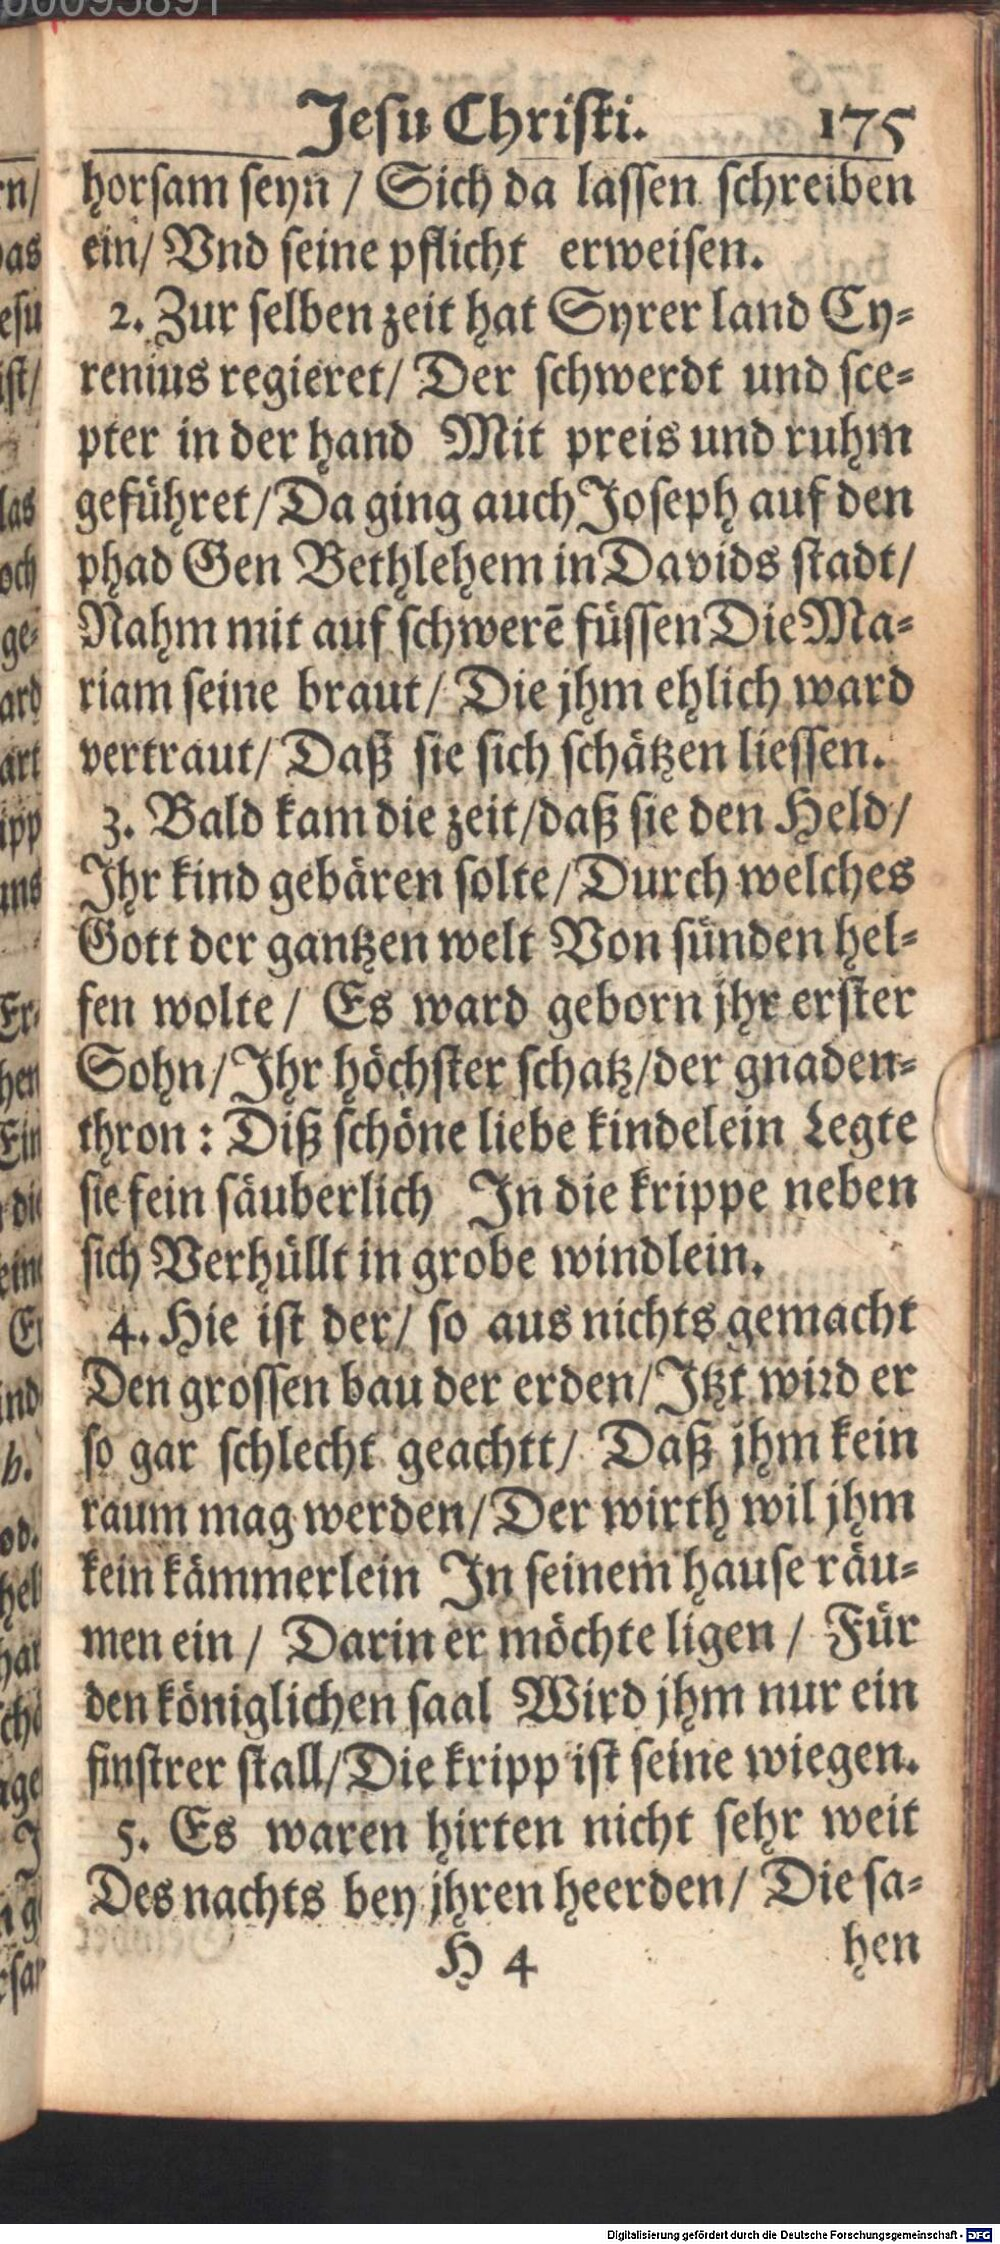 Jesu Christi. 175
horsam seyn / Sich da lassen schreiben
ein/ Vnd seine pflicht erweisen.
2. Zur selben zeit hat Syrer land Cy-
renius regieret/ Der schwerdt und sce-
pter in der hand Mit preis und ruhm
geführet/ Da ging auch Joseph auf den
phad Gen Bethlehem in Davids stadt/
Nahm mit auf schwerē füssen Die Ma-
riam seine braut/ Die jhm ehlich ward
vertraut/ Daß sie sich schätzen liessen.
3. Bald kam die zeit/daß sie den Held/
Ihr kind gebären solte/ Durch welches
Gott der gantzen welt Von sünden hel-
fen wolte/ Es ward geborn jhr erster
Sohn/ Ihr höchster schatz/der gnaden-
thron: Diß schöne liebe kindelein Legte
sie fein säuberlich In die krippe neben
sich Verhüllt in grobe windlein.
4. Hie ist der/ so aus nichts gemacht
Den grossen bau der erden/ Jtzt wird er
so gar schlecht geachtt/ Daß jhm kein
raum mag werden/ Der wirth wil jhm
kein kämmerlein In seinem hause räu-
men ein/ Darin er möchte ligen / Für
den königlichen saal Wird jhm nur ein
finstrer stall/ Die kripp ist seine wiegen.
5. Es waren hirten nicht sehr weit
Des nachts bey jhren heerden/ Die sa-
H 4 hen
Digitalisierung gefördert durch die Deutsche Forschungsgemeinschaft - DFG